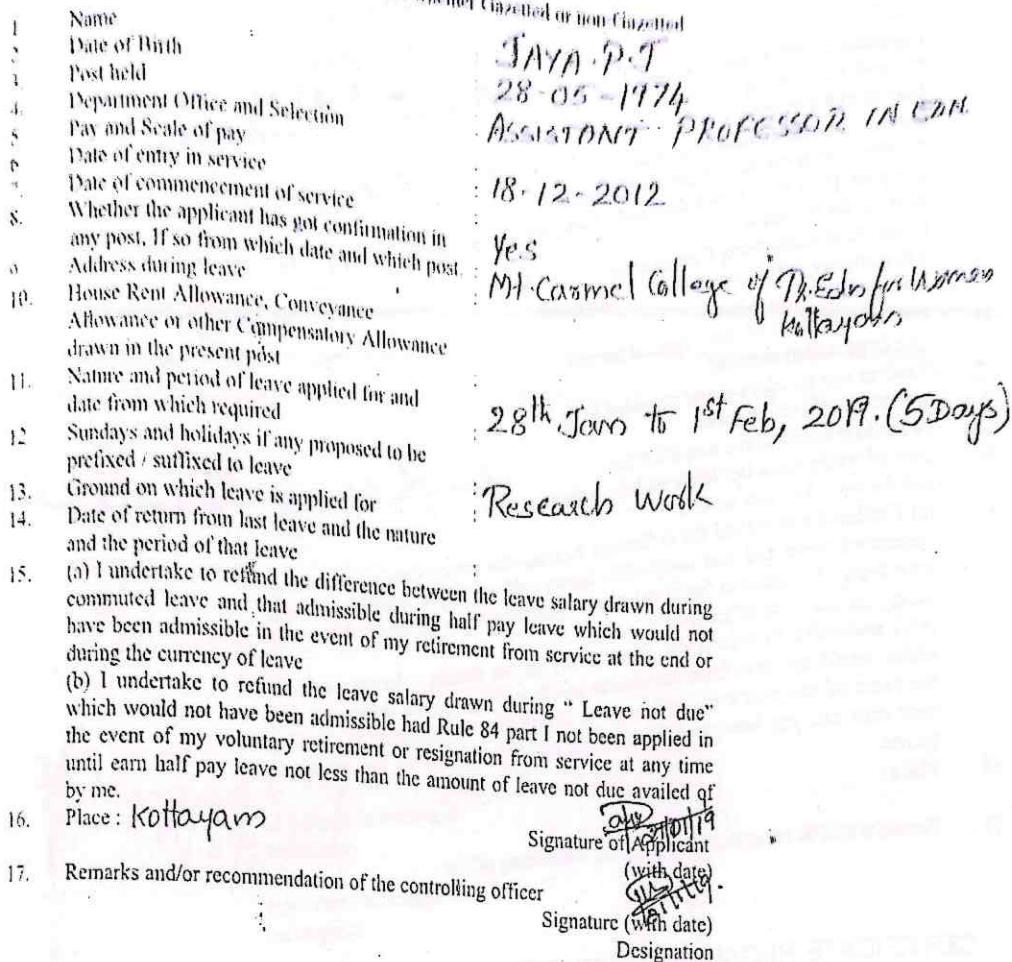 Gazetted or non Gazetted
1 Name : JAYA.P.J
2 Date of Birth 28-05-1974
3. Post held ASSISTANT PROFESSOR IN
4. Department Office and Selection
5 Pay and Scale of pay
6 Date of entry in service : 18-12-2012
7 Date of commencement of service :
8. Whether the applicant has got confirmation in
any post, If so from which date and which post. : Yes
9 Address during leave : Mt. Carmel College of Tr. Edn for Women
Kottayam
10. House Rent Allowance, Conveyance
Allowance or other Compensatory Allowance
drawn in the present post
11. Nature and period of leave applied for and
date from which required : 28th Jan to 1st Feb, 2019. (5 Days)
12 Sundays and holidays if any proposed to be
prefixed / suffixed to leave
13. Ground on which leave is applied for : Research Work
14. Date of return from last leave and the nature :
and the period of that leave
15. (a) I undertake to refund the difference between the leave salary drawn during
commuted leave and that admissible during half pay leave which would not
have been admissible in the event of my retirement from service at the end or
during the currency of leave
(b) I undertake to refund the leave salary drawn during “ Leave not due”
which would not have been admissible had Rule 84 part I not been applied in
the event of my voluntary retirement or resignation from service at any time
until earn half pay leave not less than the amount of leave not due availed of
by me.
16. Place : Kottayam
21/01/19
Signature of Applicant
(with date)
17. Remarks and/or recommendation of the controlling officer
Signature (with date)
Designation